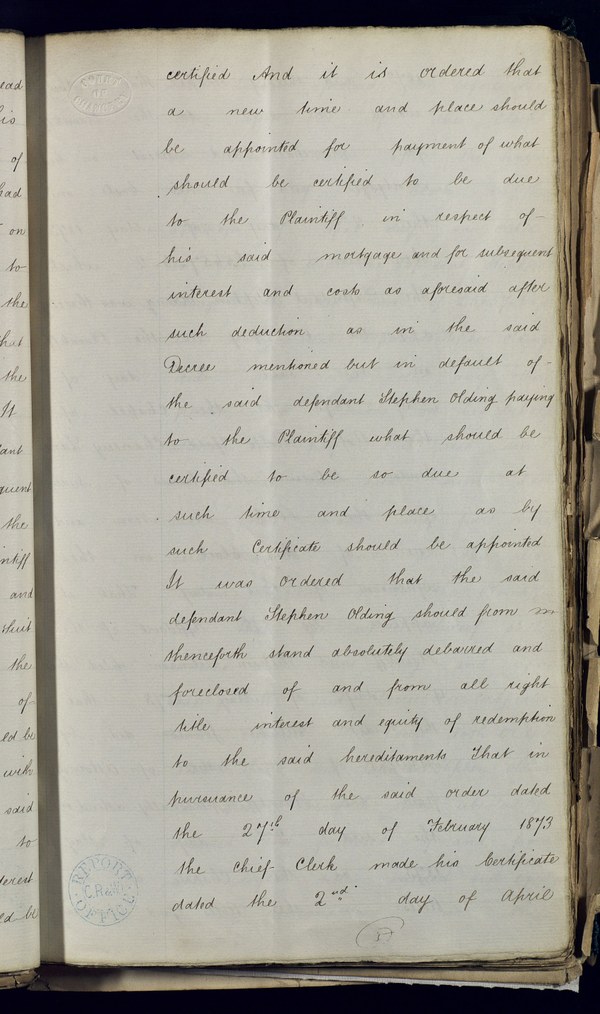 certified And it is ordered that
a new time and place should
be appointed for payment of what
should be certified to be due
to the Plaintiff in respect of
his said mortgage and for subsequent
interest and costs as aforesaid after
such deduction as in the said
Decree mentioned but in default of
the said defendant Stephen Olding paying
to the Plaintiff what should be
certified to be so due at
such time and place as by
such Certificate should be appointed
It was ordered that the said
defendant Stephen Olding should from
thenceforth stand absolutely debarred and
foreclosed of and from all right
title interest and equity of redemption
to the said hereditaments That in
pursuance of the said order dated
the 27th day of February 1873
the Chief Clerk made his Certificate
dated the 2nd day of April
REPORT OFFICE
his
of
had
on
to
the
that
the
It
the
and
the
of
with
said
to